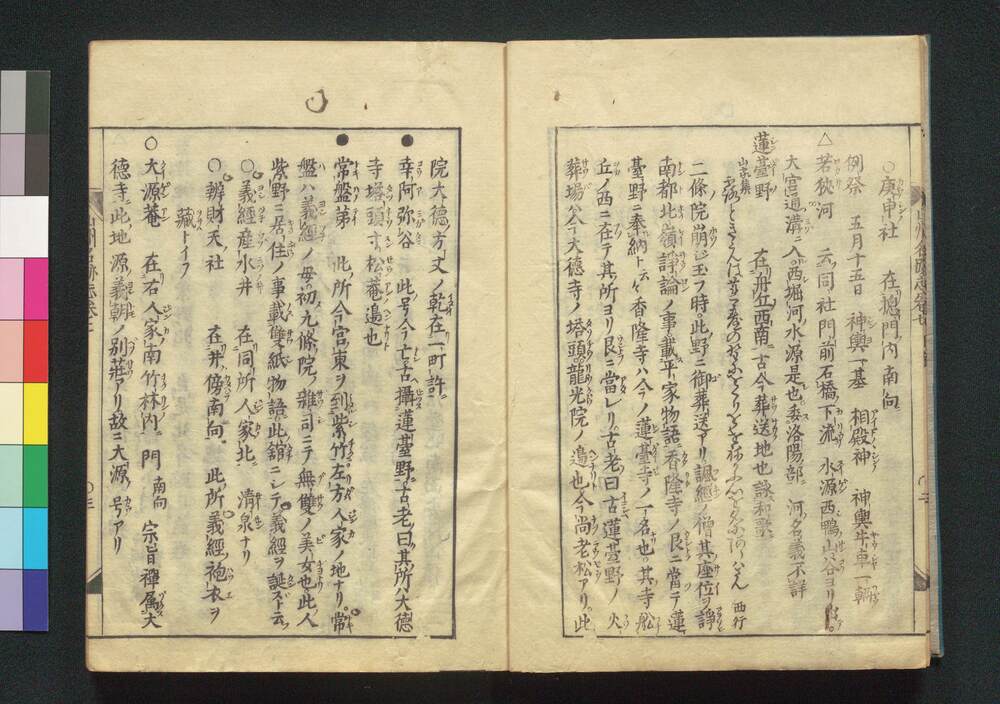 ○庚申社　在惣門内南向
例祭　五月十五日　神輿一基　相殿神　神輿牛車一輌
△若狭河　云同社門前石橋下流　水源西鴨山谷ヨリ
大宮通溝ニ入西堀河水源是也委洛陽部ニ　河名義不詳
蓮臺野　在舟丘西南ニ古今葬送地也詠和歌
山家集　西行
二條院崩玉フ時此野ニ御葬送アリ諷經ノ僧其座位ヲ諍
南都北嶺諍論ノ事載平家物語香隆寺ノ艮ニ當テ蓮
臺野ニ奉納ト云々香隆寺ハ今ノ蓮臺寺ノ一名也其寺舩
丘ノ西ニ在テ其所ヨリ艮ニ當レリ古老ノ曰古蓮臺野ノ火
葬場ハ今大德寺ノ塔頭龍光院ノ邉也今尚老松アリ此
院大德方丈ノ乾在一町許
●幸阿弥谷　此号今亡古攝蓮臺野古老曰其所ハ大德
寺塔頭寸松菴邉也
●常盤第　此所今宮東ヲ到紫竹左方人家ノ地ナリ常
盤ハ義經ノ母初九條院ノ雜司ニテ無雙ノ美女也此人
紫野ニ居住ノ事載雙紙物語此舘ニシテ義經ヲ誕ズト云
○義經産水井　在同所人家北　清泉ナリ
○辨財天社　在井傍南向　此所義經袍衣ヲ
藏トイフ
○大源菴　在右人家南竹林内ニ　門南向　宗旨禪属大
德寺ニ此地源義朝ノ別荘アリ故ニ大源ノ号アリ